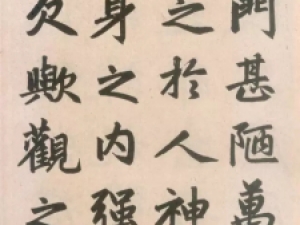 門甚陋萬
之於人神
身之内强
歟觀之